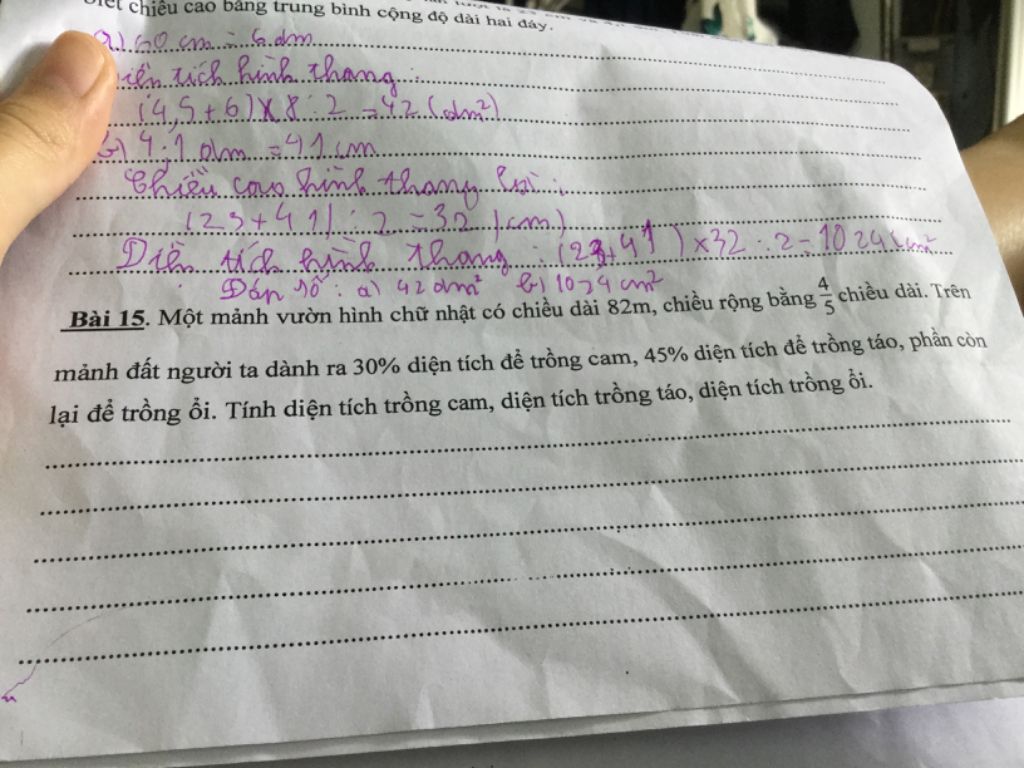 Biết chiều cao bằng trung bình cộng độ dài hai đáy.
a) 60 cm = 6 dm
Diện tích hình thang :
(4,5 + 6) x 8 : 2 = 42 (dm²)
b) 4,1 dm = 41 cm
Chiều cao hình thang là :
(23 + 41) : 2 = 32 (cm)
Diện tích hình thang : (23 + 41) x 32 : 2 = 1024 (cm²
Đáp số : a) 42 dm² b) 1024 cm²
Bài 15. Một mảnh vườn hình chữ nhật có chiều dài 82m, chiều rộng bằng 4/5 chiều dài. Trên
mảnh đất người ta dành ra 30% diện tích để trồng cam, 45% diện tích để trồng táo, phần còn
lại để trồng ổi. Tính diện tích trồng cam, diện tích trồng táo, diện tích trồng ổi.